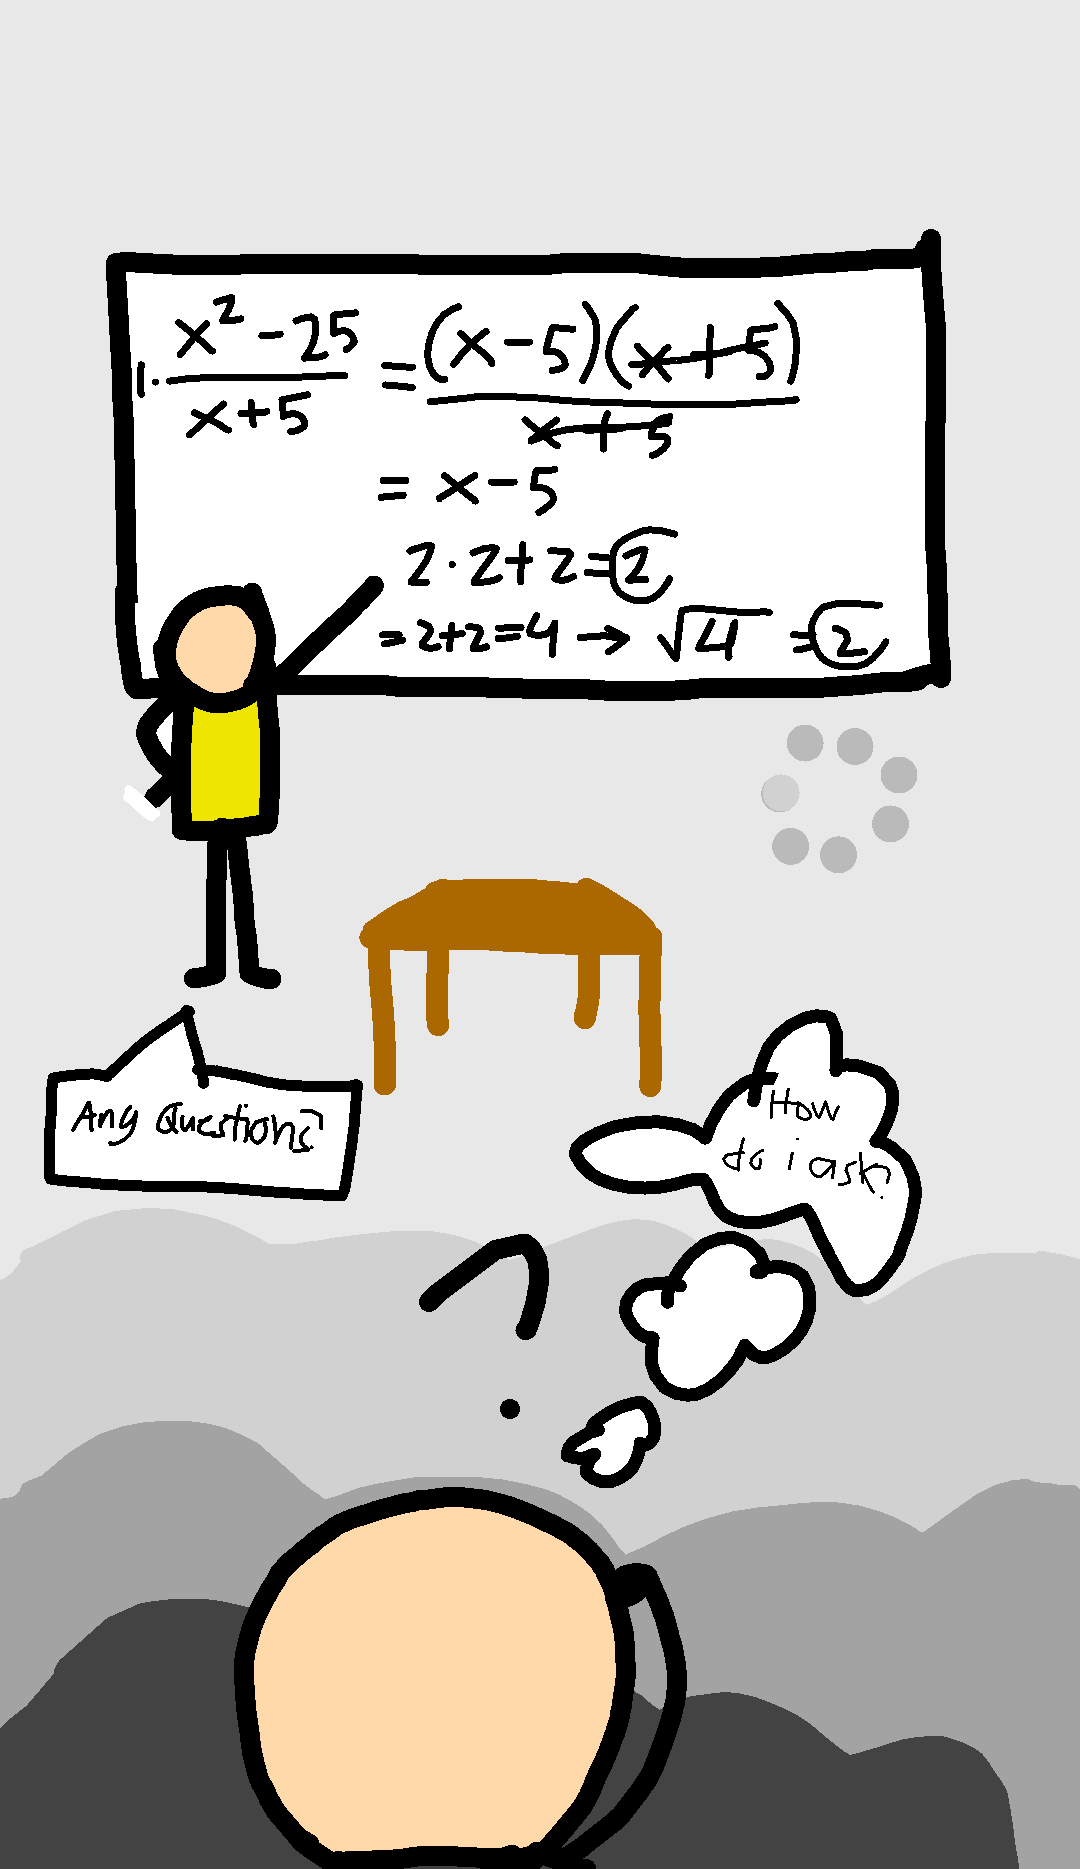 1. x² - 25 / x + 5 = (x - 5)(x + 5) / x + 5
= x - 5
2 · 2 + 2 = 2
= 2 + 2 = 4 → √4 = 2
Any Questions?
How
do i ask?
?